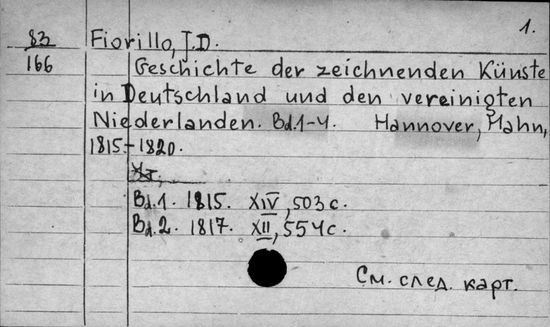 1.
83 Fiorillo, I.D.
166 Geschichte der zeichnenden Künste
in Deutschland und den vereinigten
Niederlanden. Bd.1-4. Hannover, Hahn,
1815-1820.
Bd.1. 1815. XIV, 503 с.
Bd.2. 1817. XII, 554 с.
См. след. карт.